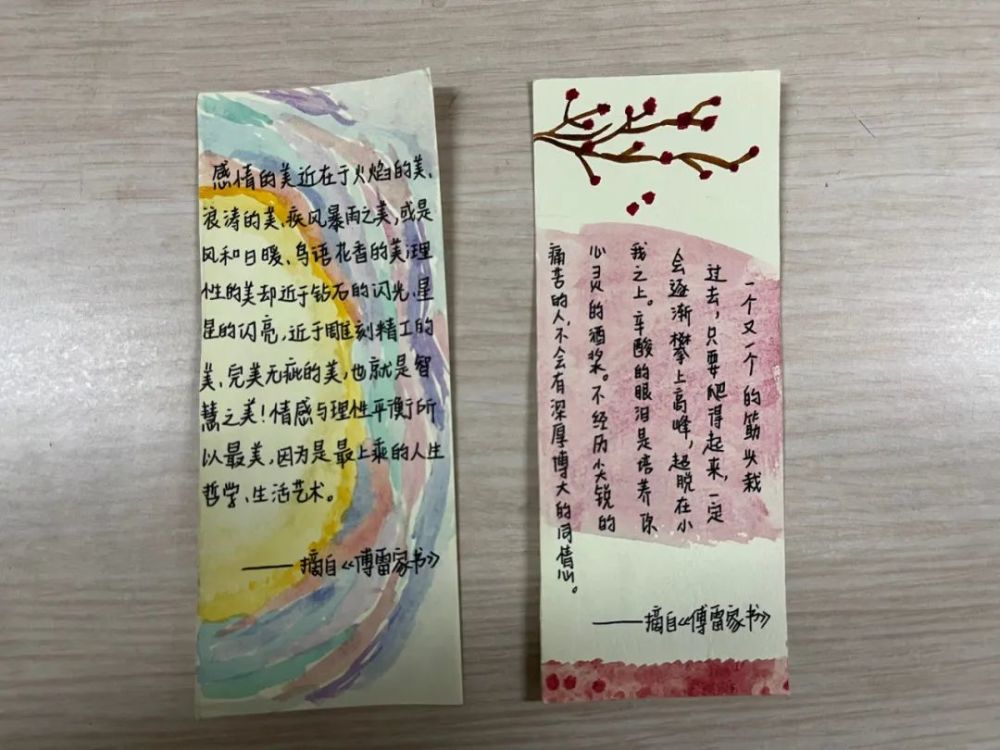 感情的美近在于火焰的美、
浪涛的美、疾风暴雨之美,或是
风和日暖、鸟语花香的美;理
性的美却近于钻石的闪光、星
星的闪亮,近于雕刻精工的
美、完美无疵的美,也就是智
慧之美!情感与理性平衡所
以最美,因为是最上乘的人生
哲学、生活艺术。
——摘自《傅雷家书》
一个又一个的筋头栽
过去,只要爬得起来,一定
会逐渐攀上高峰,超脱在小
我之上。辛酸的眼泪是培养你
心灵的酒浆。不经历尖锐的
痛苦的人,不会有深厚博大的同情心。
——摘自《傅雷家书》